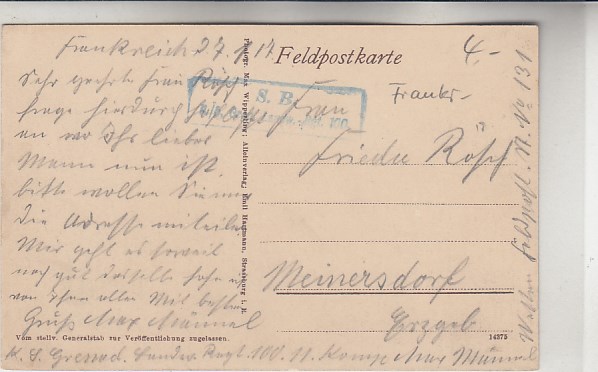 Frankreich 27. 17
Feldpostkarte
4.-
Sehr geehrte Frau Rösch
frage hierdurch
an wo Ihr lieber
Mann nun ist,
bitte wollen Sie mir
die Adresse mitteilen
Mir geht es soweit
noch gut dasselbe hoffe ich
von Ihnen allen Mit besten
Gruß Max Männel
S. B.
Frankr-
Frau
Frieda Rösch
Meinersdorf
Erzgeb
Photogr. Max Wipperling; Alleinverlag: Emil Hartmann, Strassburg i. E.
Vom stellv. Generalstab zur Veröffentlichung zugelassen.
14375
K. S. Landw Regt. 100. 11. Komp Max Männel
Westen Feldpost: No 131